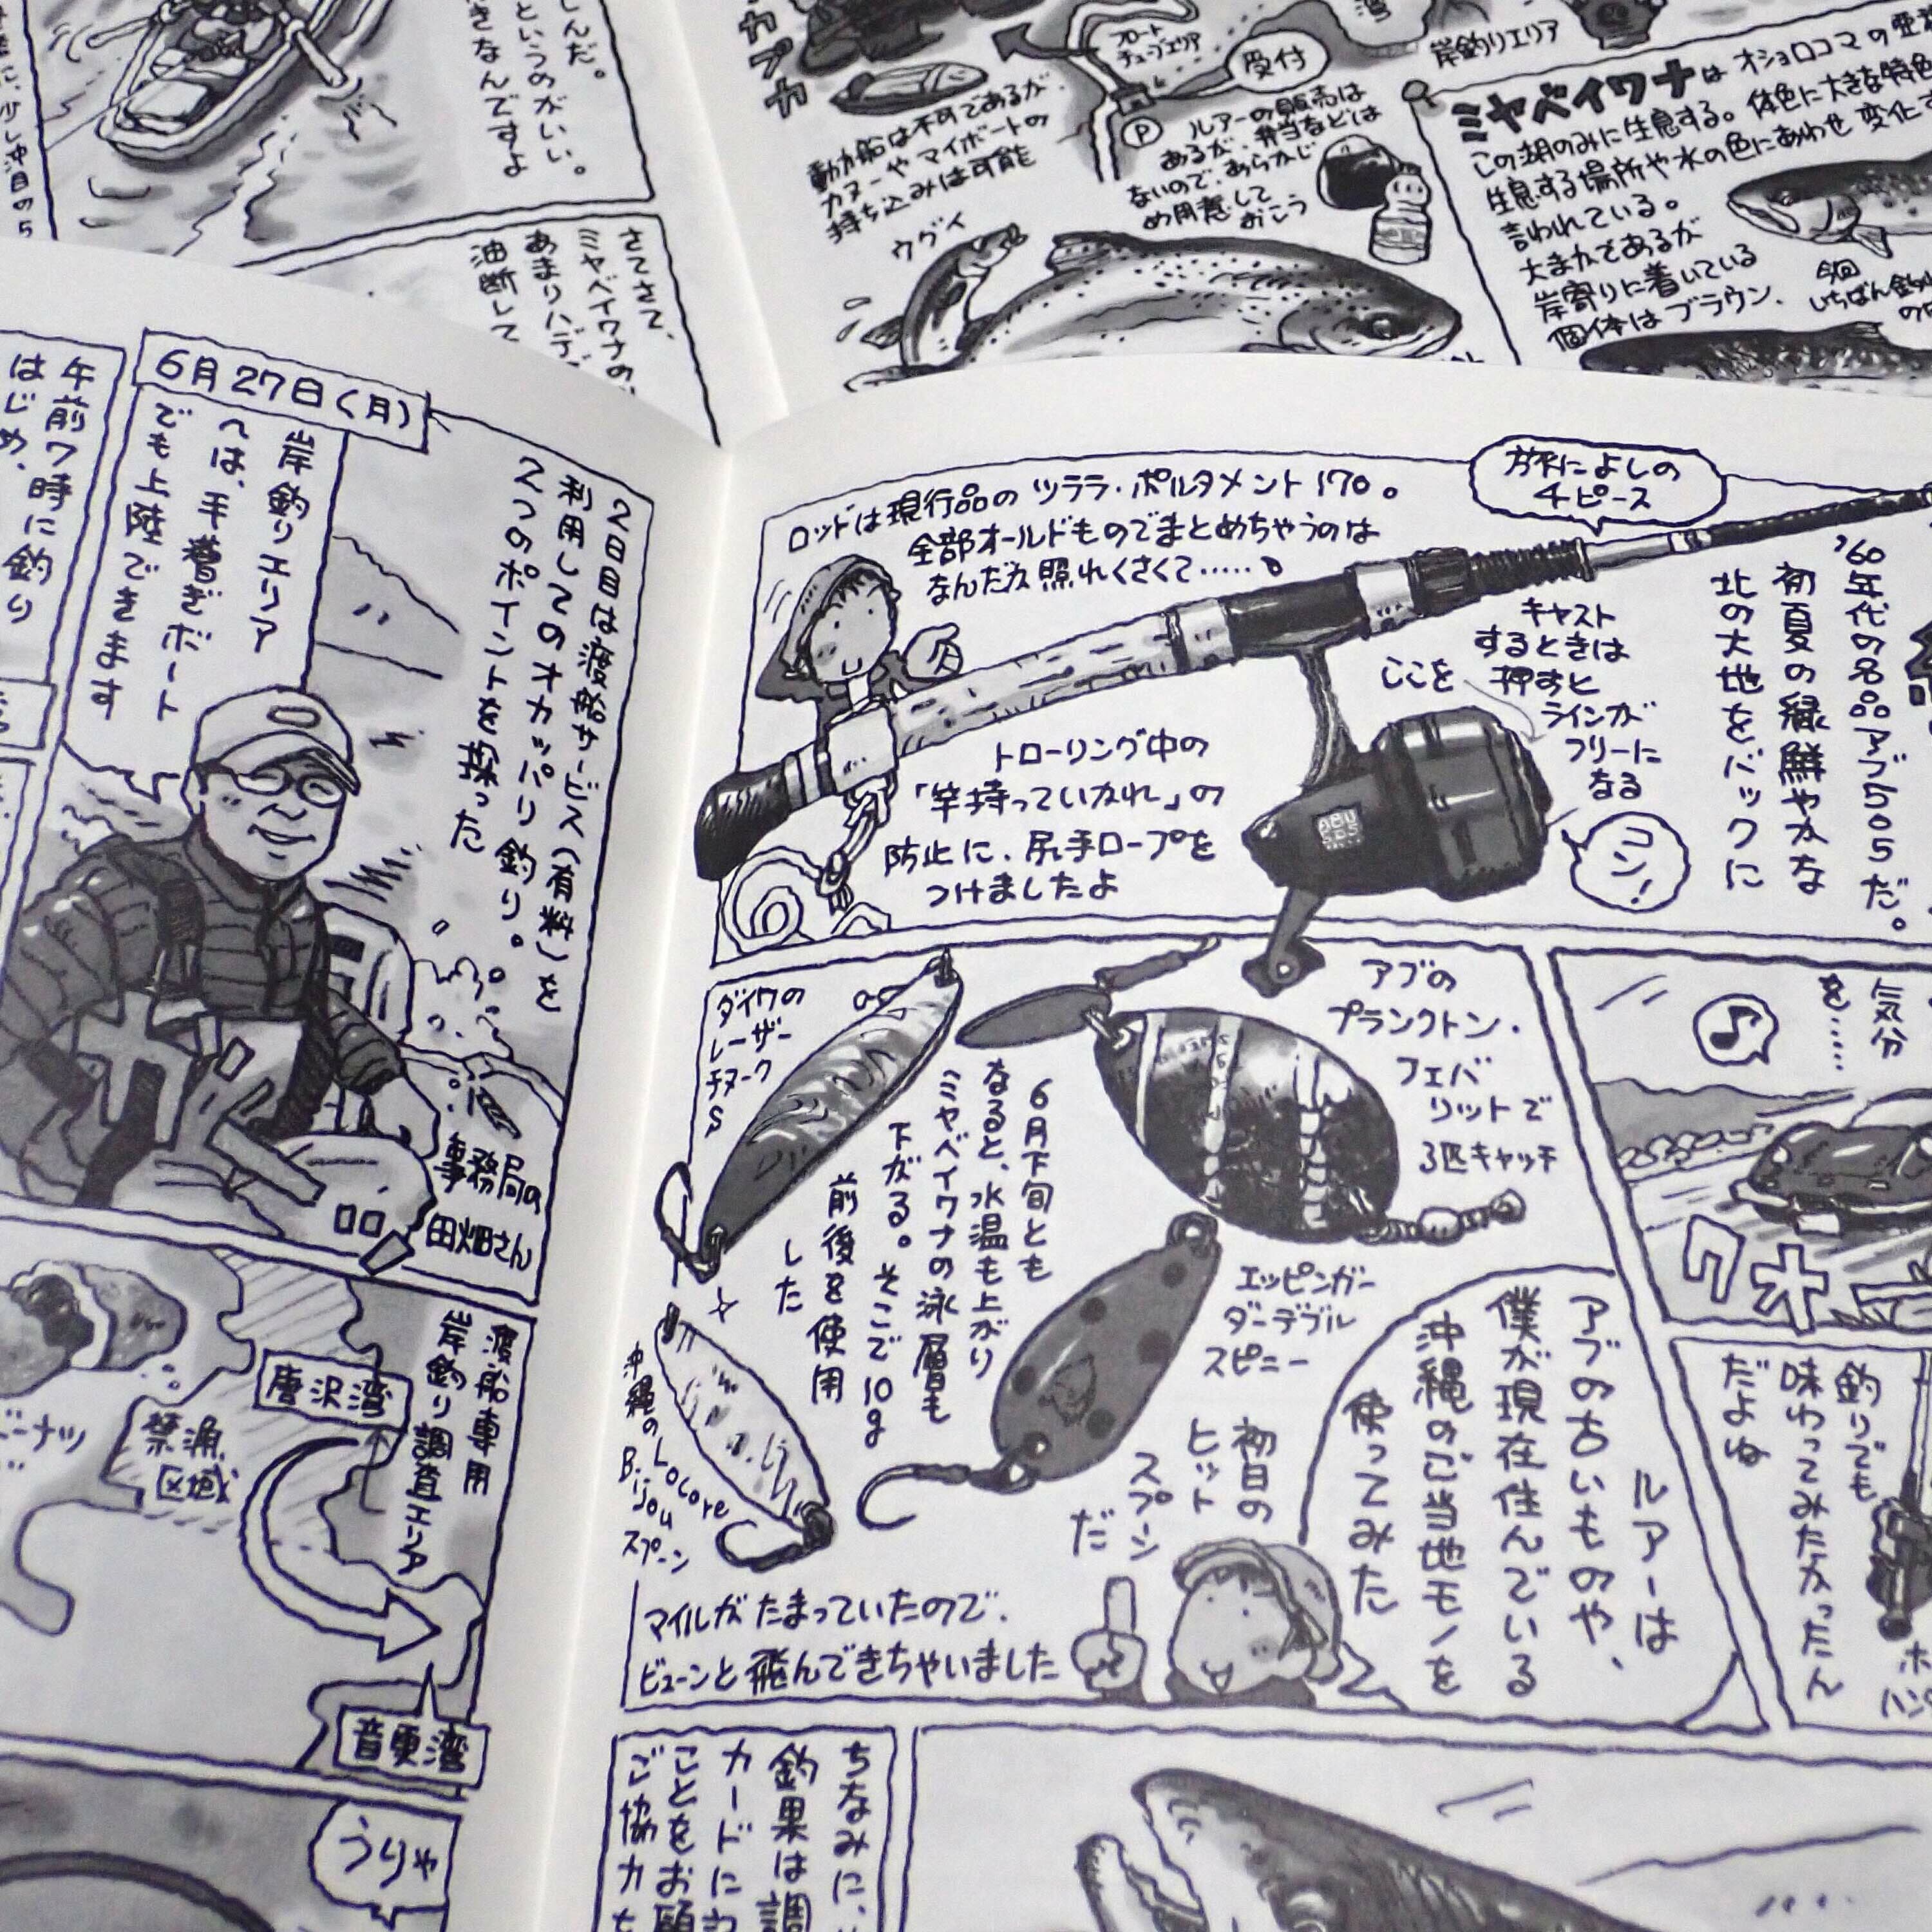 しんだ。
というのがいい。
きなんですよ
さてさて、
ミヤベイワナの、
あまりハデ
油断して
カブカ
フロート
チューブエリア
受付
岸釣りエリア
動力船は不可であるが、
カヌーやマイボートの
持ち込みは可能
P
ルアーの販売は
あるが、弁当などは
ないので、あらかじ
め用意して
おこう
ウグイ
ミヤベイワナは オショロコマの亜
この湖のみに生息する。体色に大きな特色
生息する場所や水の色にあわせ 変化
言われている。
大まかであるが
岸寄りに着いている
個体はブラウン.
今回
いちばん釣
6月27日(月)
午前7時に釣り
はじめ、
岸釣りエリア
へは、手漕ぎボート
でも上陸できます
2日目は渡船サービス(有料)を
利用してのオカッパリ釣り。
2つのポイントを探った
事務局の
田畑さん
渡船専用
岸釣り調査エリア
唐沢湾
禁漁
区域
ーナツ
音更湾
うりゃ
ロッドは現行品の ツララ・ポルタメント170。
全部オールドものでまとめちゃうのは
なんだか照れくさくて……。
旅によしの
4ピース
'60年代の名品アブ505だ。
初夏の緑鮮やかな
北の大地をバックに
キャスト
するときは
ここを 押すと
ラインが
フリーに
なる
コン!
ABU
505
トローリング中の
「竿持っていかれ」の
防止に、尻手ロープを
つけましたよ
ダイワの
レーザー
チヌーク
S
アブの
プランクトン.
フェバ
リットで
3匹キャッチ
6月下旬とも
なると、水温も上がり
ミヤベイワナの泳層も
下がる。そこで10g
前後を使用
した
エッピンガー
ダーデブル
スピニー
初日の
ヒット
スプーン
だ
沖縄の
Locore
Bijou
スプーン
ルアーは
アブの古いものや、
僕が現在住んでいる
沖縄のご当地モノを
使ってみた
マイルが たまっていたので、
ビューンと飛んできちゃいました
気分
を……
♪
クォー
釣りでも
味わってみたかったん
だよね
ちなみに、
釣果は調
カードに記
ことをお願
ご協力を